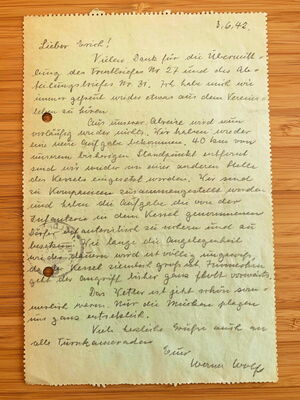 3.6.42.
Lieber Erich!
Vielen Dank für die Übermitt-
lung des Frontbriefes Nr 27 und des Ab-
teilungsbriefes Nr. 31. Ich habe mich wie
immer gefreut wieder etwas aus dem Vereins-
leben zu hören.
Aus unserer Abreise wird nun
vorläufig wieder nichts. Wir haben wieder
ein neue Aufgabe bekommen, 40 km von
unserem bisherigen Standpunkt entfernt
sind wir wieder an einer anderen Stelle
des Kessels eingesetzt worden. Wir sind
zu Kompanien zusammengestellt worden
und haben die Aufgabe die von der
Infanterie in dem Kessel genommenen
Dörfer zu sichern und zu
besetzen. Wie lange die Angelegenheit
wieder dauern wird ist völlig ungewiss,
da der Kessel ziemlich gross ist. Immerhin
geht der Angriff bisher ganz flott vorwärts.
Das Wetter ist jetzt schön som-
merlich warm. Nur die Mücken plagen
uns ganz entsetzlich.
Viele herzliche Grüße auch an
alle Turnkameraden
Euer
Werner Wolf